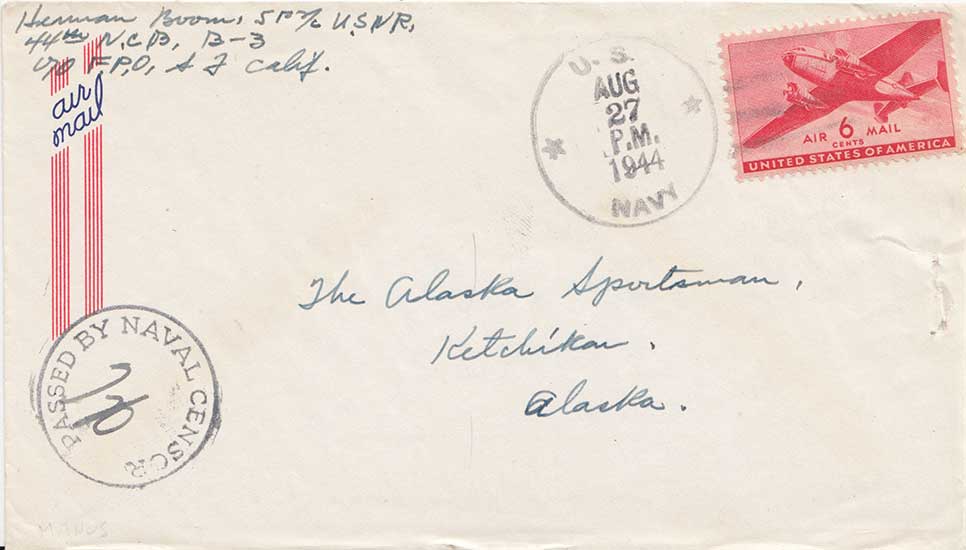 Herman Boom, SP 2/c U.S.N.R.
44th N.C.B, B-3
c/o F.P.O, S F Calif.
air
mail
U. S.
AUG
27
P.M.
1944
NAVY
AIR 6 MAIL
CENTS
UNITED STATES OF AMERICA
The Alaska Sportsman,
Ketchikan,
Alaska.
PASSED BY NAVAL CENSOR
MANUS